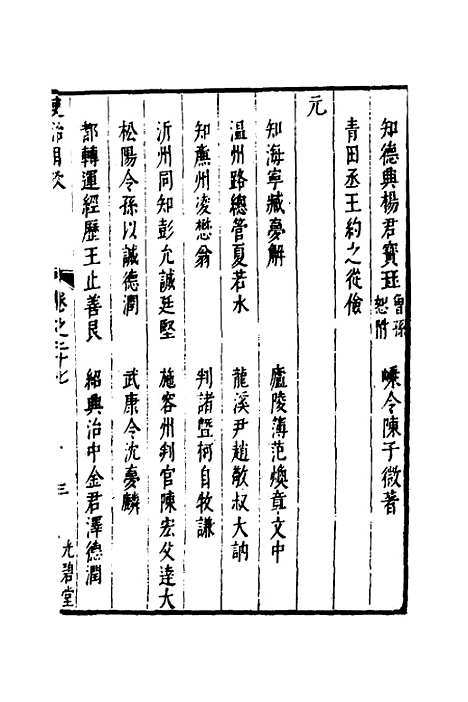 知德興楊君寶珏曾孫恕附 嵊令陳子微著
青田丞王約之從儉
元
知海寧臧夢解 廬陵簿范煥章文中
温州路總管夏若水 龍溪尹趙敬叔大訥
知薰州凌懋翁 判諸暨柯自牧謙
沂州同知彭允誠廷堅 施容州判官陳宏父達大
松陽令孫以誠德潤 武康令沈夢麟
都轉運經歷王止善艮 紹興治中金君澤德潤
吏治目次 卷之二十七 三 光碧堂